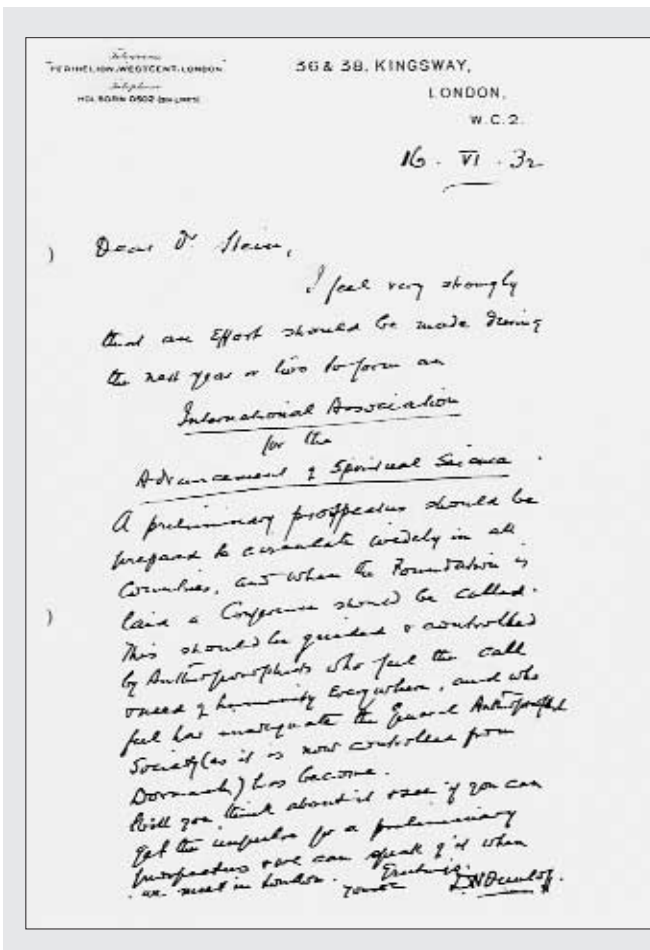 Telegrams
"PERIHELION, WESTCENT, LONDON"
Telephone
HOLBORN 0502 (SIX LINES)
36 & 38, KINGSWAY,
LONDON,
W.C.2.
16 . VI . 32
Dear Dr Stein,
I feel very strongly
that an Effort should be made during
the next year or two to form an
International Association
for the
Advancement of Spiritual Science.
A preliminary prospectus should be
prepared to circulate widely in all
Countries, and when the Foundation is
laid a Conference should be called.
This should be guided & controlled
by Anthroposophists who feel the call
& need of humanity Everywhere, and who
feel how inadequate the General Anthroposophical
Society (as it is now controlled from
Dornach) has become.
Will you think about it & see if you can
get the impulse for a preliminary
prospectus & we can speak of it when
we meet in London.
D N Dunlop.